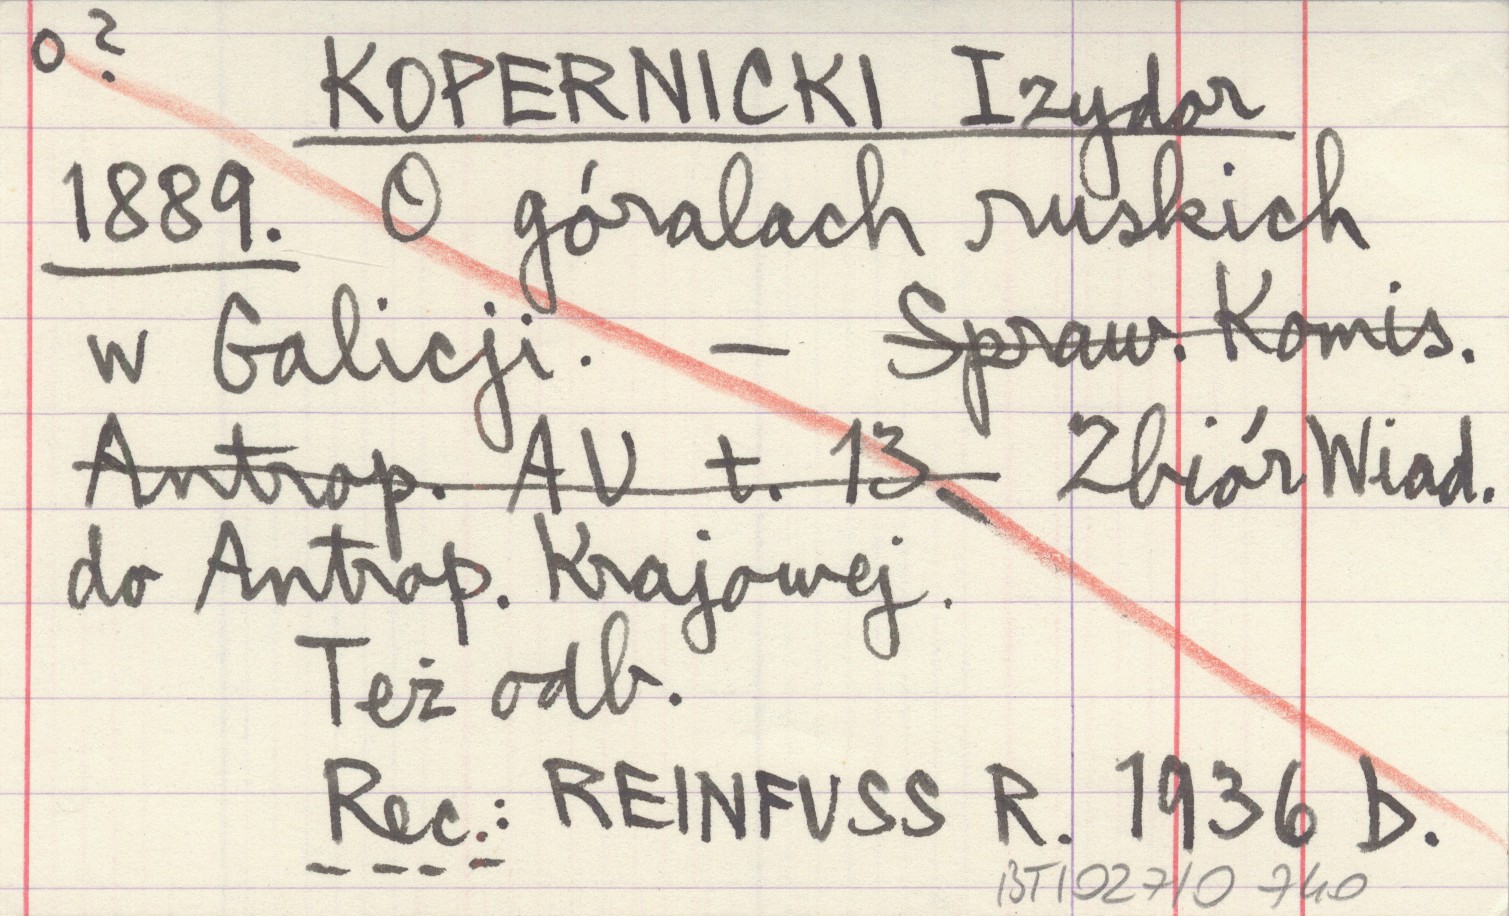 o ?
KOPERNICKI Izydor
1889. O góralach ruskich
w Galicji. — Spraw. Komis.
Antrop. AU t. 13 — Zbiór Wiad.
do Antrop. Krajowej.
Też odb.
Rec.: REINFUSS R. 1936 b.
BT102710 740